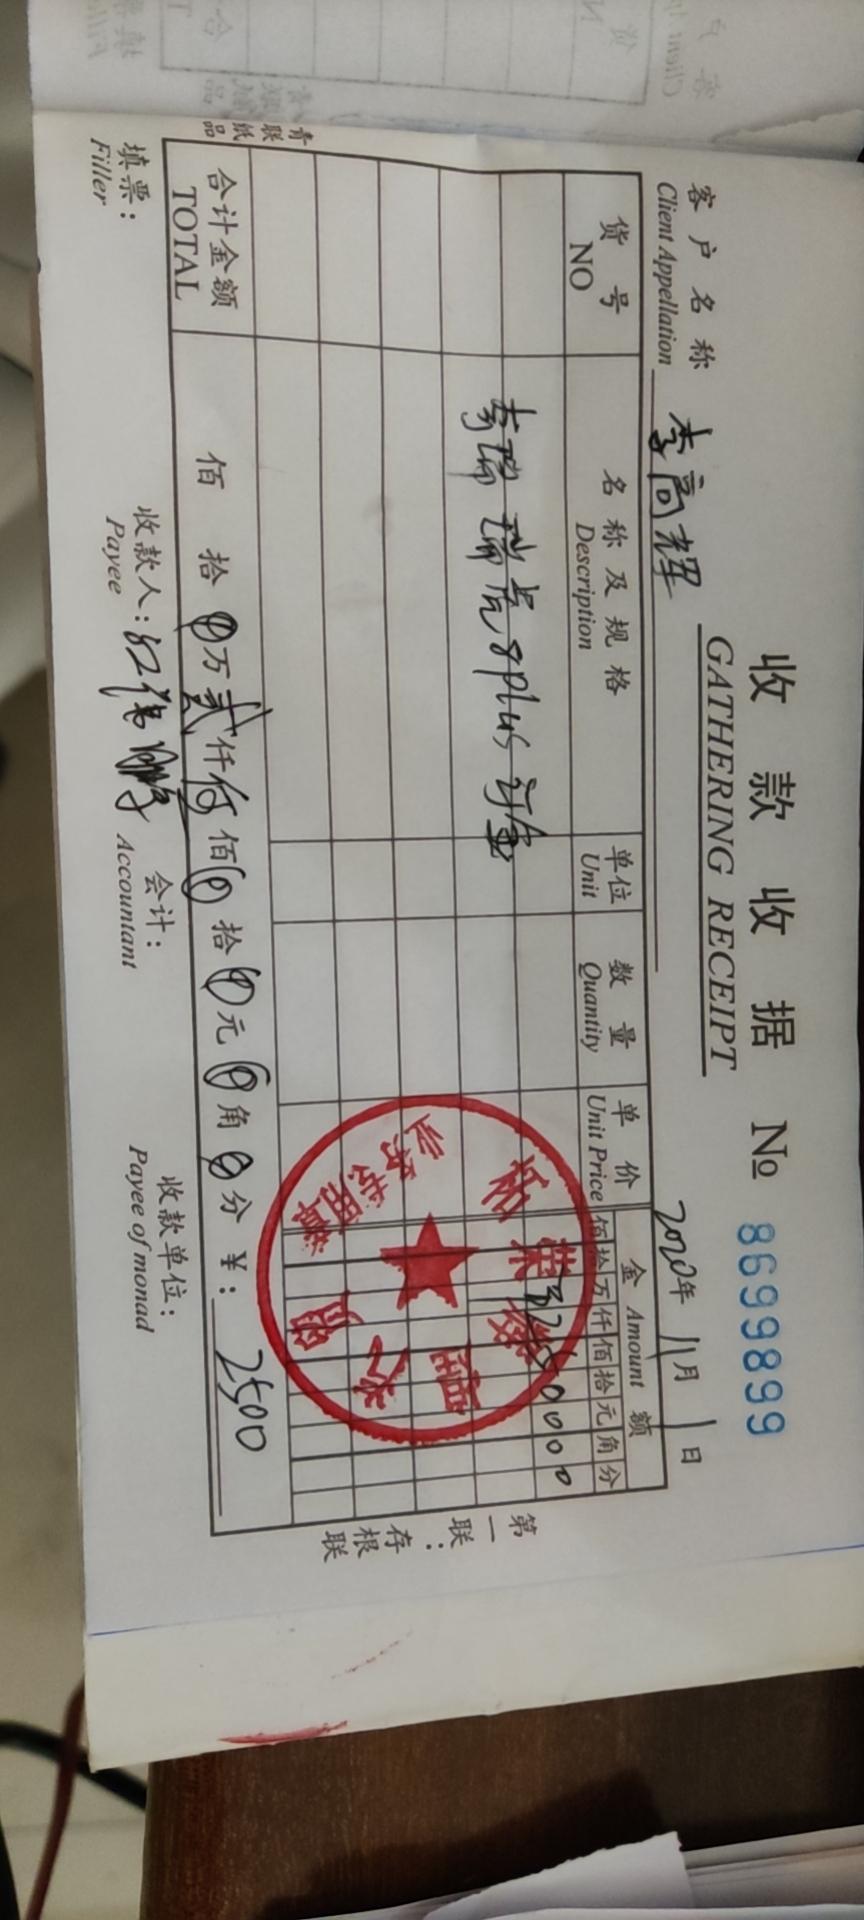 收款收据 № 8699899
GATHERING RECEIPT
2020年 11月 1日
客户名称 李高辉
Client Appellation
货号 名称及规格 单位 数量 单价 金额
NO Description Unit Quantity Unit Price Amount
佰拾万仟佰拾元角分
奇瑞 瑞虎8plus 订金
合计金额 佰 拾 0万 贰仟 伍佰 0拾 0元 0角 0分 ¥: 2500
TOTAL
填票: 收款人: 会计: 收款单位:
Filler Payee Accountant Payee of monad
第一联:存根联
青联纸品